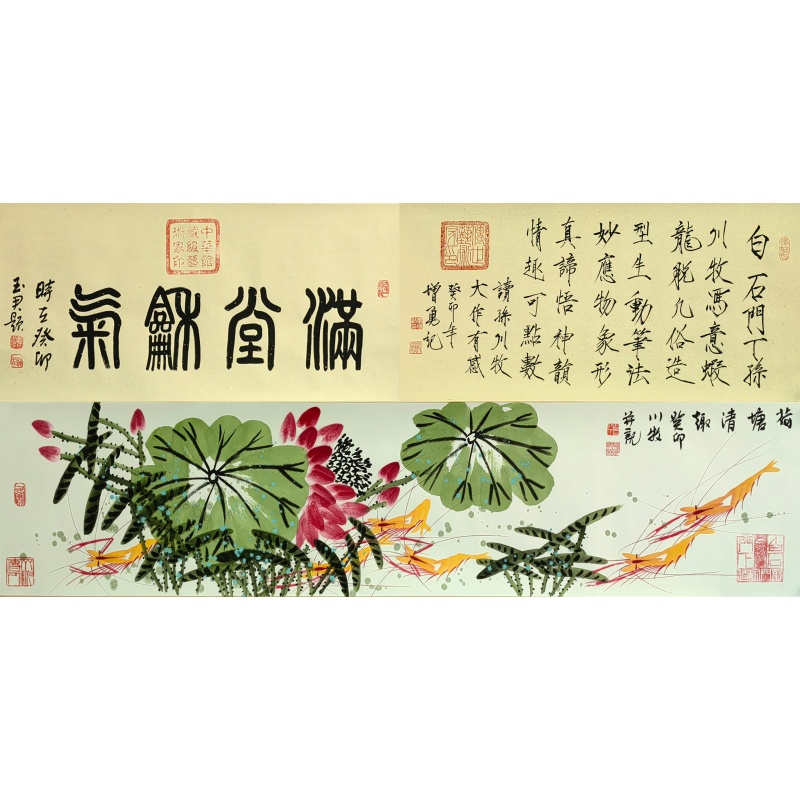 滿堂龢氣
時在癸卯
玉尹題
中華館
藏級藝
術家印
白石門丁孫
川牧馮意蝦
龍脫凡俗造
型生動筆法
妙應物象形
真諦悟神韻
情趣可點數
讀孫川牧
大作有感
癸卯年
增勇記
荷塘清趣
癸卯
川牧
并記